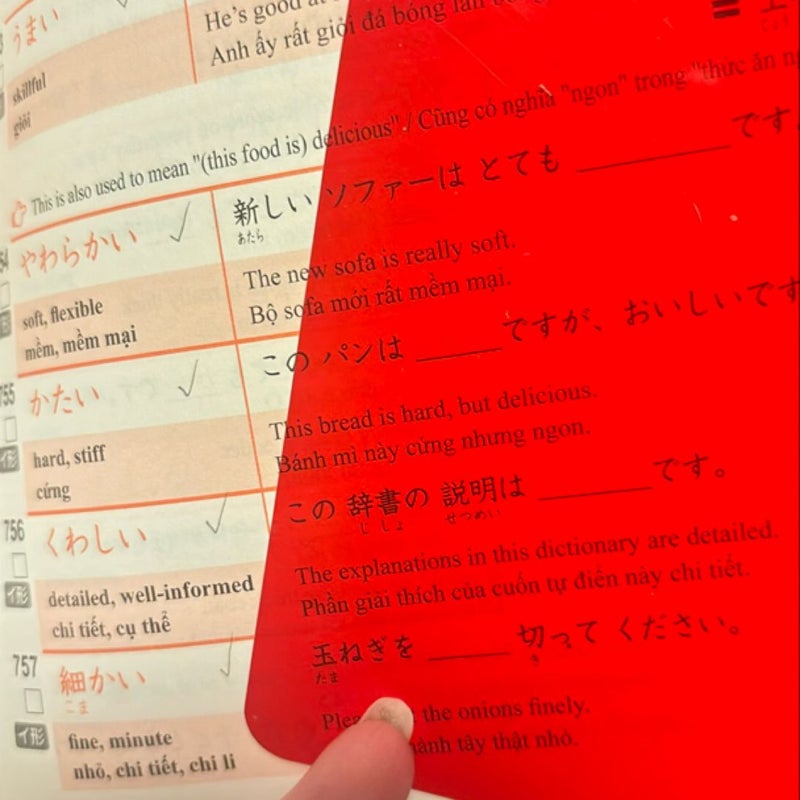 うまい
skillful
giỏi
He's good at
Anh ấy rất giỏi đá bóng
This is also used to mean "(this food is) delicious". / Cũng có nghĩa "ngon" trong "thức ăn
やわらかい
soft, flexible
mềm, mềm mại
新しい ソファーは とても ________ です。
あたら
The new sofa is really soft.
Bộ sofa mới rất mềm mại.
755
かたい
イ形
hard, stiff
cứng
この パンは ______ ですが、おいしいです
This bread is hard, but delicious.
Bánh mì này cứng nhưng ngon.
756
くわしい
イ形
detailed, well-informed
chi tiết, cụ thể
この 辞書の 説明は ________ です。
じしょ せつめい
The explanations in this dictionary are detailed.
Phần giải thích của cuốn tự điển này chi tiết.
757
細かい
こま
イ形
fine, minute
nhỏ, chi tiết, chi li
玉ねぎを ______ 切って ください。
たま き
the onions finely.
hành tây thật nhỏ.